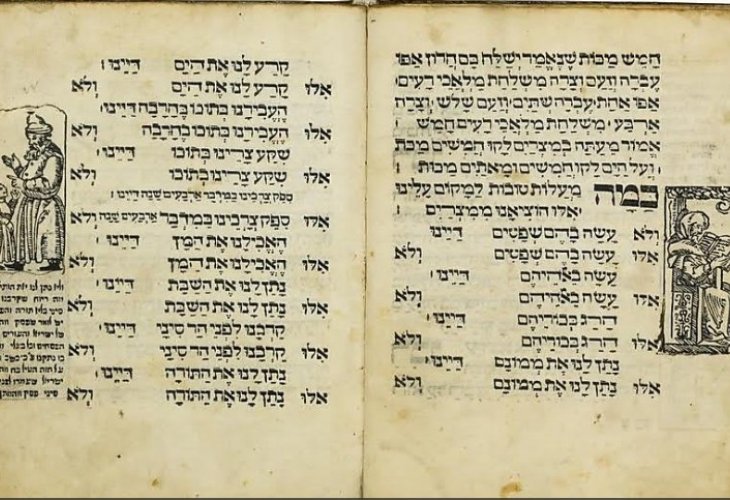 חמש מכות שנאמר ישלח בם חרון אפו
עברה וזעם וצרה משלחת מלאכי רעים.
אפו אחת. עברה שתים. וזעם שלש. וצרה
ארבע. משלחת מלאכי רעים חמש.
אמור מעתה במצרים לקו חמשים מכות
ועל הים לקו חמשים ומאתים מכות.
כמה מעלות טובות למקום עלינו
אלו הוציאנו ממצרים
ולא עשה בהם שפטים דיינו.
אלו עשה בהם שפטים ולא
עשה באלהיהם דיינו.
אלו עשה באלהיהם ולא
הרג בכוריהם דיינו.
אלו הרג בכוריהם ולא
נתן לנו את ממונם דיינו.
אלו נתן לנו את ממונם ולא
קרע לנו את הים דיינו.
אלו קרע לנו את הים ולא
העבירנו בתוכו בחרבה דיינו.
אלו העבירנו בתוכו בחרבה ולא
שקע צרינו בתוכו דיינו.
אלו שקע צרינו בתוכו ולא
ספק צרכינו במדבר ארבעים שנה דיינו.
אלו ספק צרכינו במדבר ארבעים שנה ולא
האכילנו את המן דיינו.
אלו האכילנו את המן ולא
נתן לנו את השבת דיינו.
אלו נתן לנו את השבת ולא
קרבנו לפני הר סיני דיינו.
אלו קרבנו לפני הר סיני ולא
נתן לנו את התורה דיינו.
אלו נתן לנו את התורה ולא